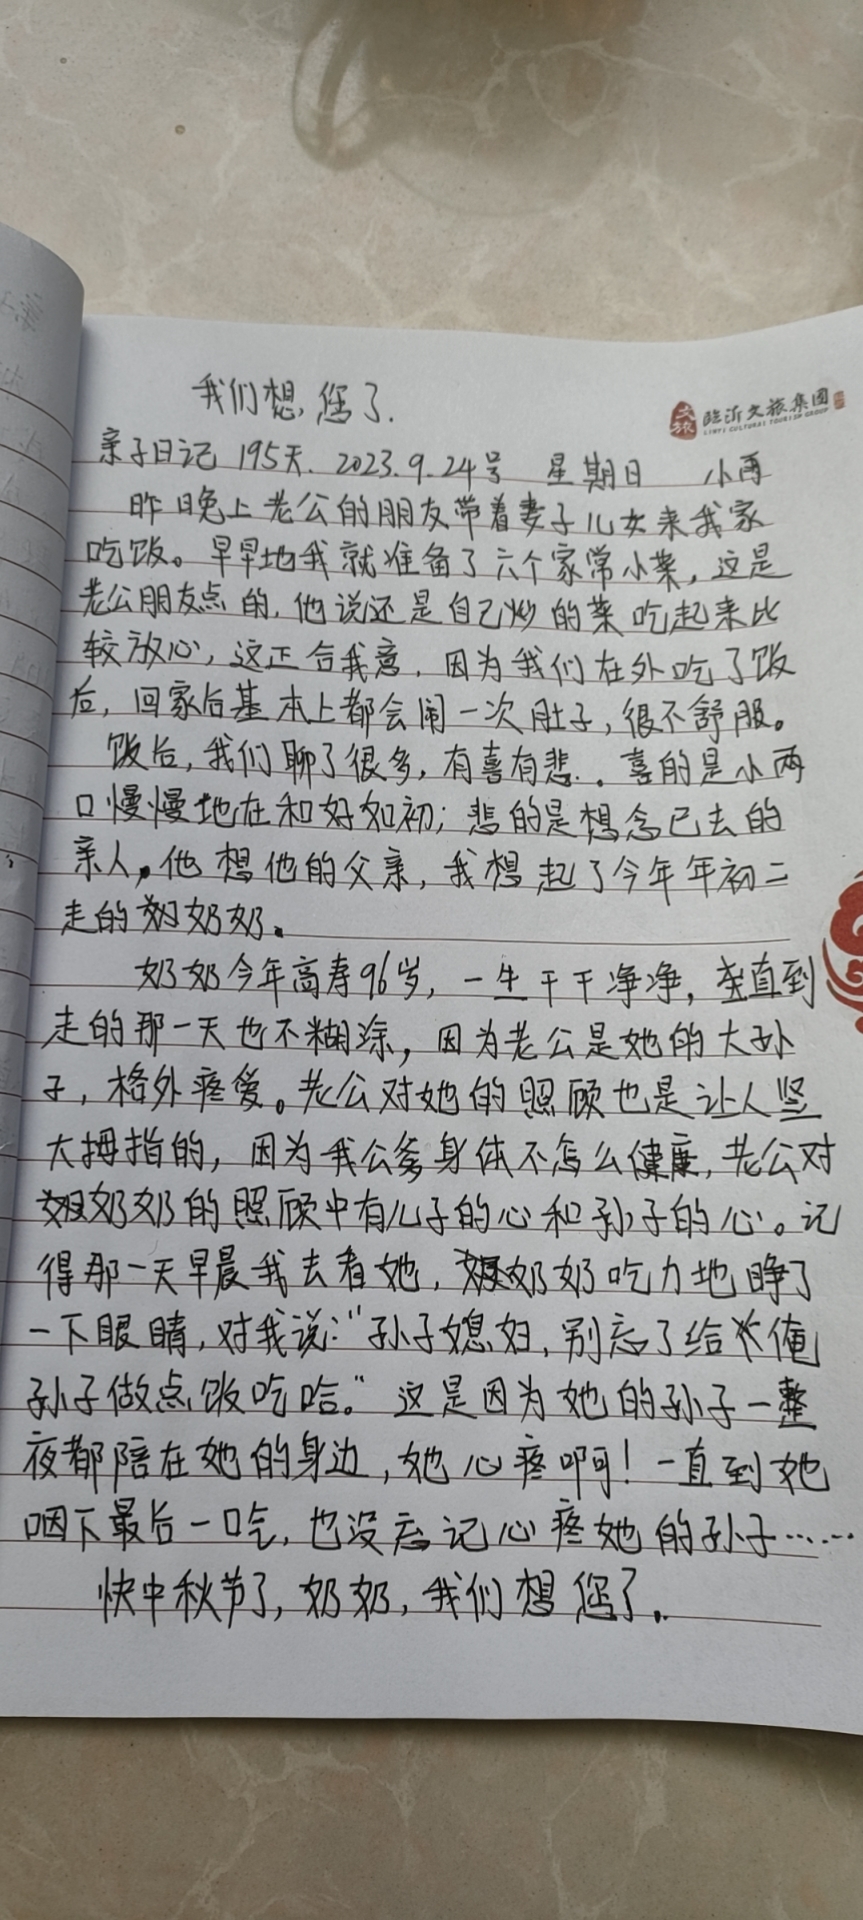 我们想您了.
文旅 临沂文旅集团
LINYI CULTURAL TOURISM GROUP
亲子日记 195天. 2023.9.24号 星期日 小雨
昨晚上老公的朋友带着妻子儿女来我家
吃饭。早早地我就准备了六个家常小菜，这是
老公朋友点的，他说还是自己炒的菜吃起来比
较放心，这正合我意，因为我们在外吃了饭
后，回家后基本上都会闹一次肚子，很不舒服。
饭后，我们聊了很多，有喜有悲.。喜的是小两
口慢慢地在和好如初；悲的是想念已去的
亲人，他想他的父亲，我想起了今年年初二
走的奶奶。
奶奶今年高寿96岁，一生干干净净，直到
走的那一天也不糊涂，因为老公是她的大孙
子，格外疼爱。老公对她的照顾也是让人竖
大拇指的，因为我公爹身体不怎么健康，老公对
奶奶的照顾中有儿子的心和孙子的心。记
得那一天早晨我去看她，奶奶吃力地睁了
一下眼睛，对我说："孙子媳妇，别忘了给俺
孙子做点饭吃哈。"这是因为她的孙子一整
夜都陪在她的身边，她心疼啊！一直到她
咽下最后一口气，也没忘记心疼她的孙子……
快中秋节了，奶奶，我们想您了。